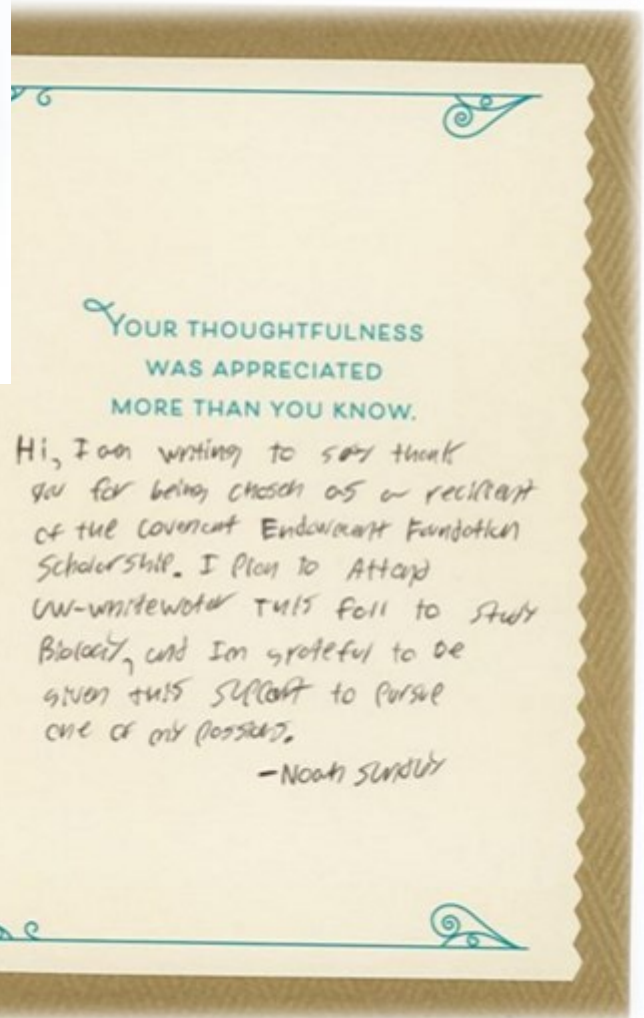 YOUR THOUGHTFULNESS
WAS APPRECIATED
MORE THAN YOU KNOW.
Hi, I am writing to say thank
you for being chosen as a recipient
of the Covenant Endowment Foundation
Scholarship. I Plan to Attend
UW-whitewater THIS fall to study
Biology, and Im grateful to be
given this support to pursue
one of my passions.
-Noah